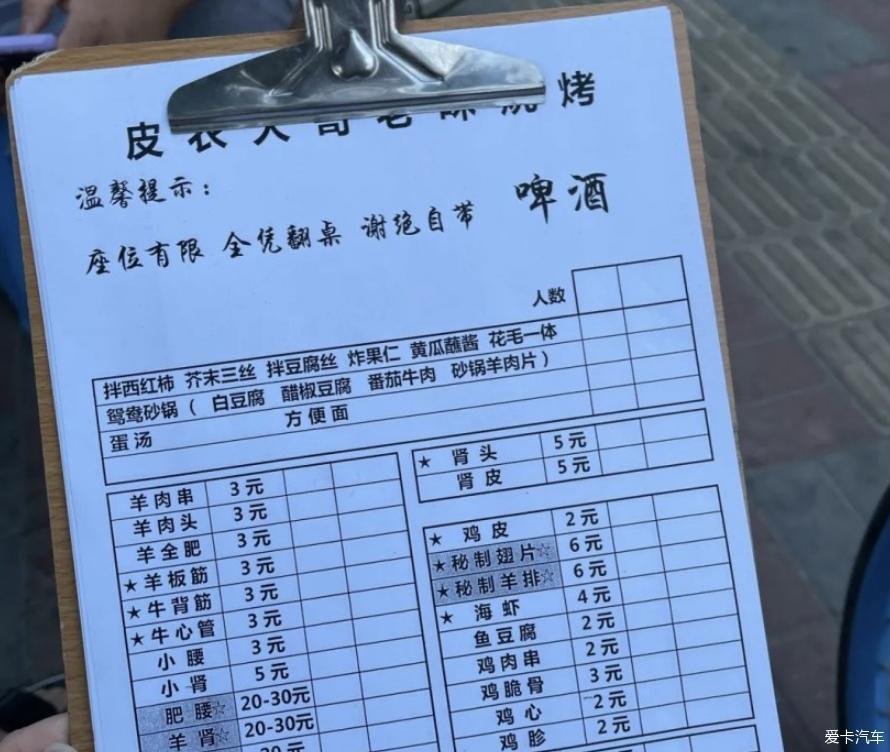 皮衣大哥老味烧烤
温馨提示：
座位有限 全凭翻桌 谢绝自带 啤酒
人数
拌西红柿 芥末三丝 拌豆腐丝 炸果仁 黄瓜蘸酱 花毛一体
鸳鸯砂锅（ 白豆腐 醋椒豆腐 番茄牛肉 砂锅羊肉片）
蛋汤 方便面
羊肉串 3元
羊肉头 3元
羊全肥 3元
★羊板筋 3元
★牛背筋 3元
★牛心管 3元
小腰 3元
小肾 5元
肥腰☆ 20-30元
羊肾☆ 20-30元
20元
★ 肾头 5元
肾皮 5元
★ 鸡皮 2元
★秘制翅片☆ 6元
★秘制羊排☆ 6元
★ 海虾 4元
鱼豆腐 2元
鸡肉串 2元
鸡脆骨 3元
鸡心 2元
鸡胗 2元
爱卡汽车